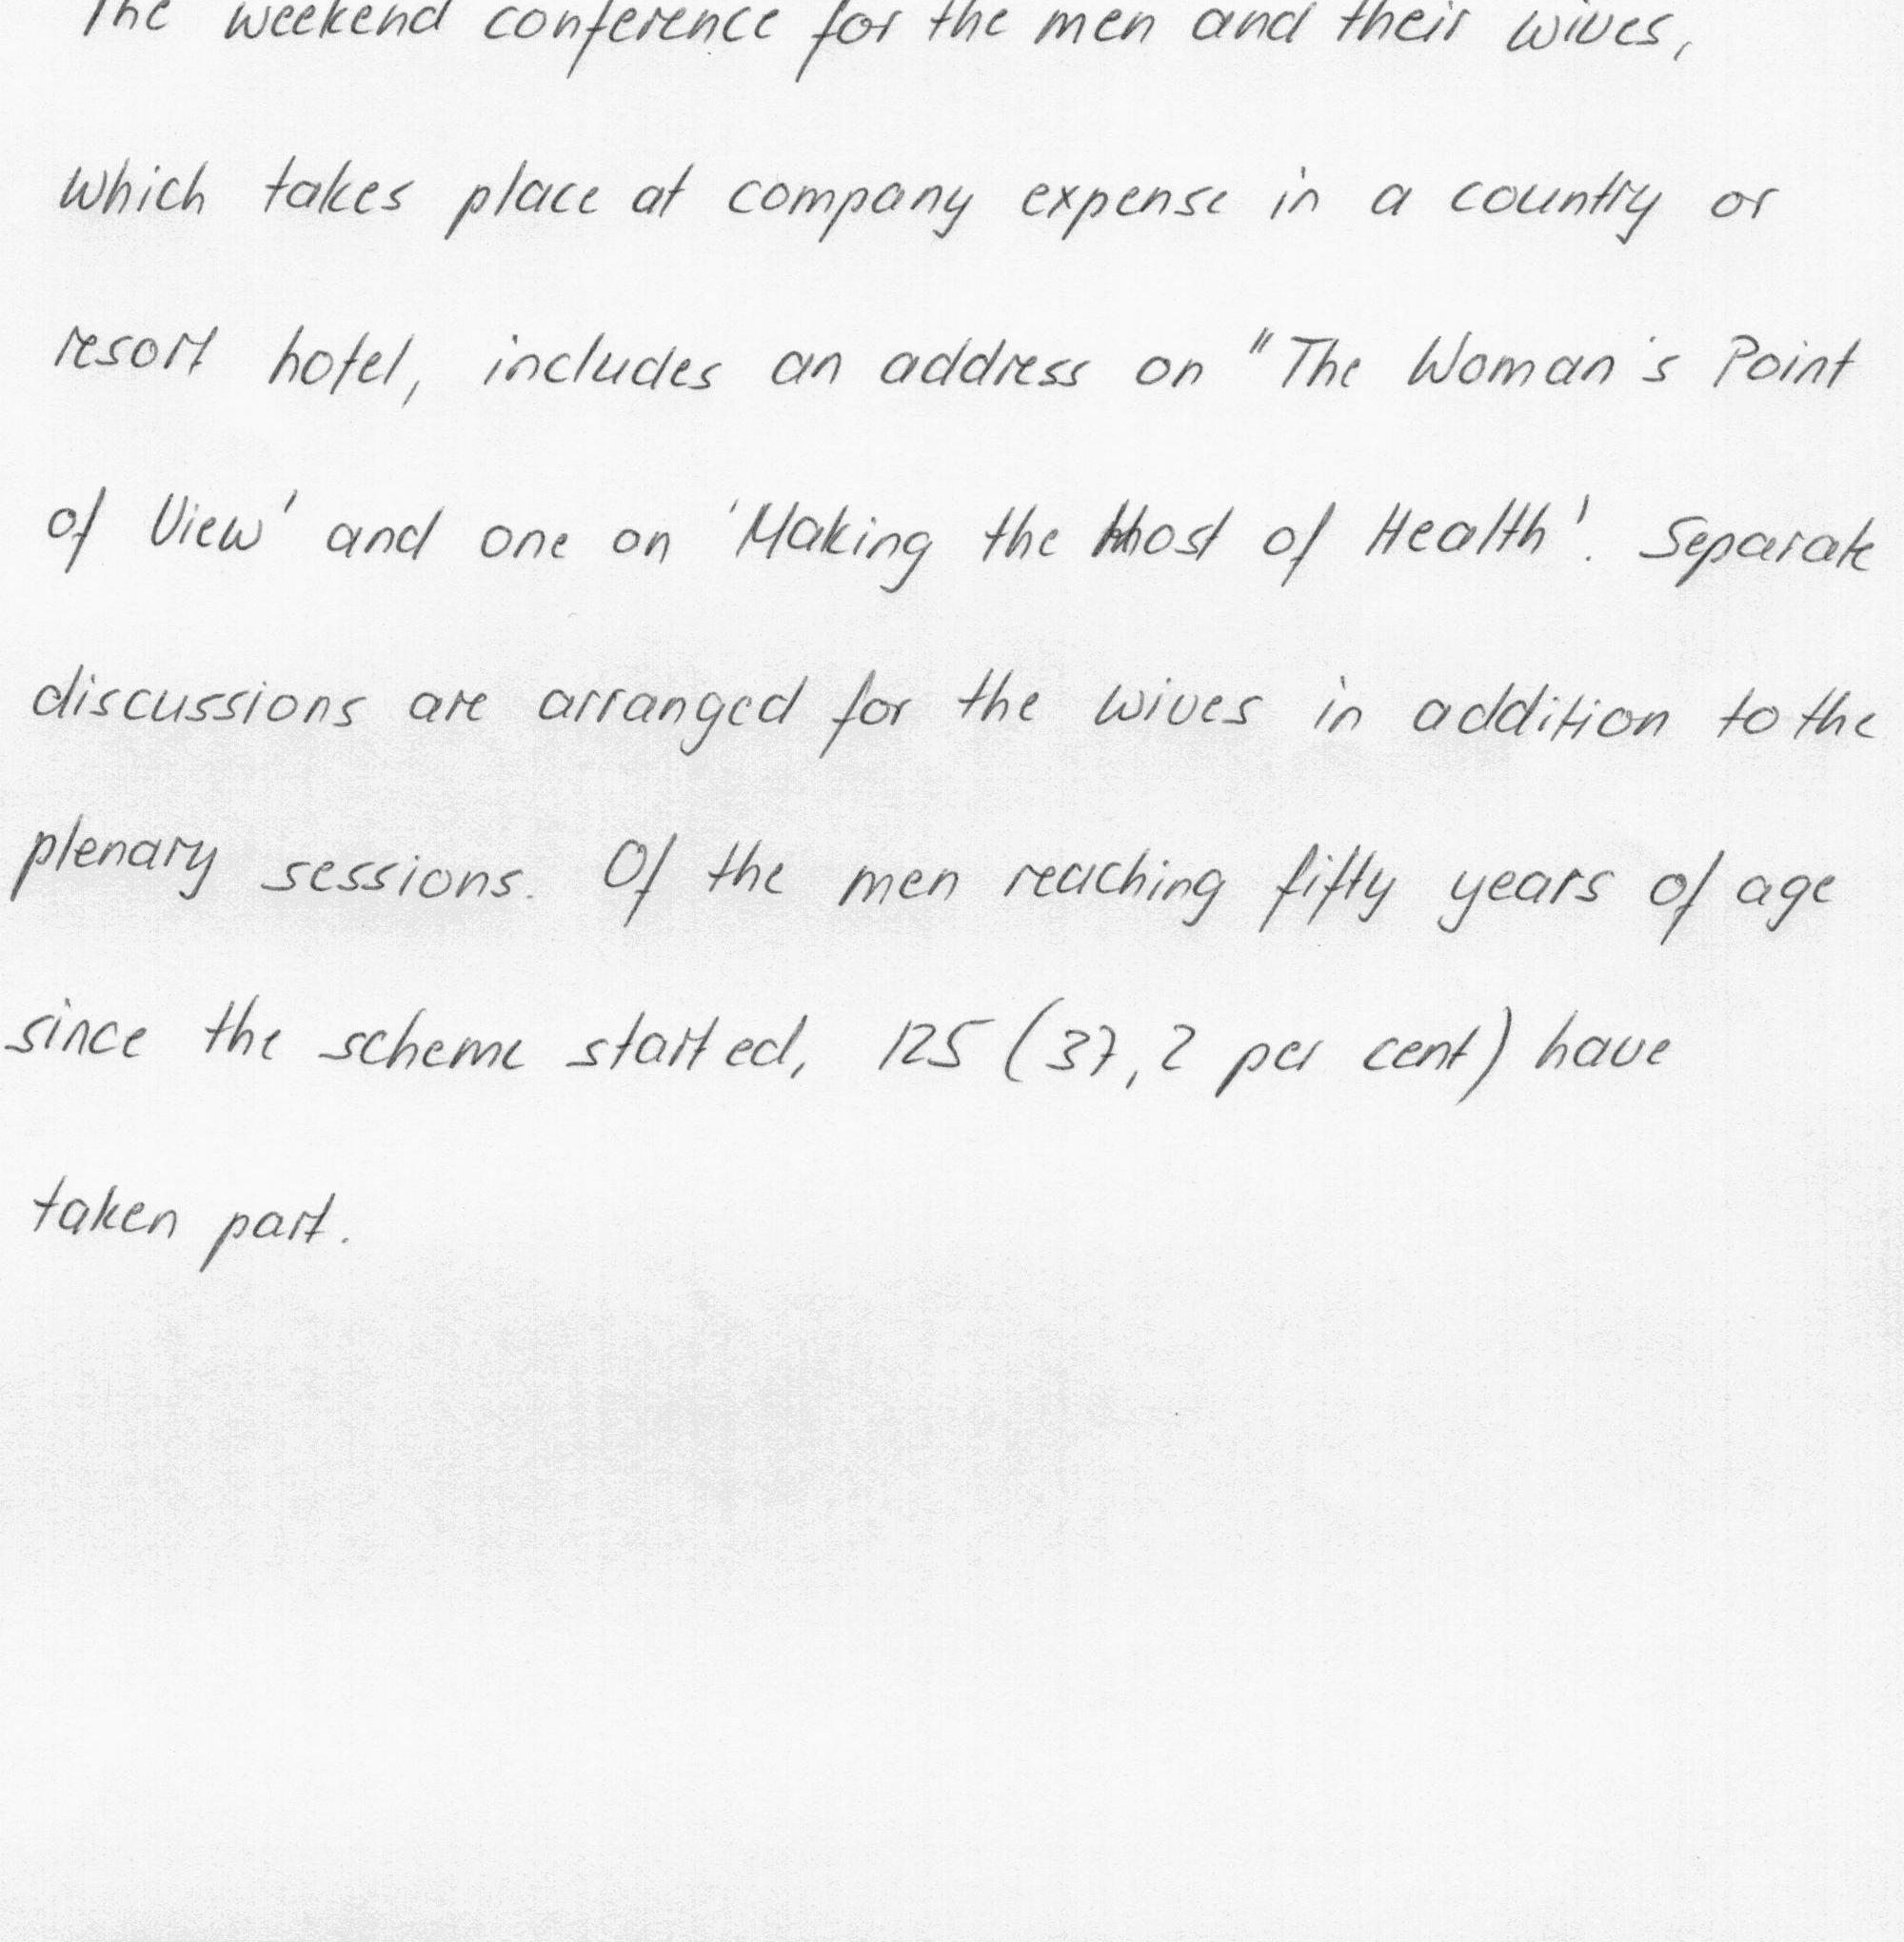 The weekend conference for the men and their wives,
which takes place at company expense in a country or
resort hotel, includes an address on "The Woman's Point
of View' and one on 'Making the Most of Health'. Separate
discussions are arranged for the wives in addition to the
plenary sessions. Of the men reaching fifty years of age
since the scheme started, 125 (37,2 per cent) have
taken part.